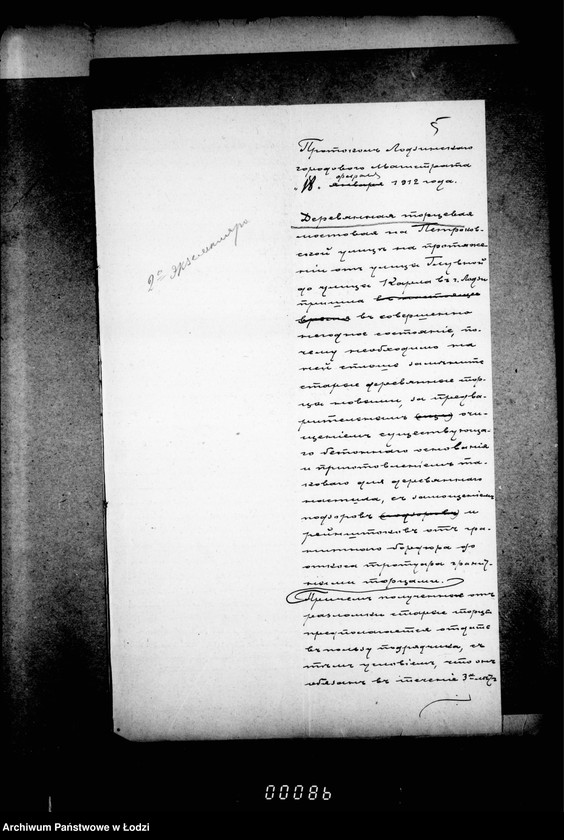 5
Протоколъ Лодзинскаго
городового Магистрата
февраля
"18" января 1912 года.
2 экземпляра
Деревянная торцевая
мостовая на Петроков-
ской улицѣ на протяже-
ніи отъ улицы Глувной
до улицы Карла въ г. Лодзи
пришла въ настоящее
время въ совершенно
негодное состояніе, по-
чему необходимо на
ней сплошь замѣнить
старые деревянные тор-
цы новыми, за предва-
рительнымъ очи-
щеніемъ существующа-
го бетоннаго основанія
и приготовленіемъ та-
коваго для деревяннаго
настила, съ замощеніемъ
подзоровъ и
рейнштоковъ отъ гра-
нитнаго бордюра до
откоса тротуара гранит-
ными торцами.
Причемъ полученные отъ
разломки старые торцы
предполагается отдать
въ пользу подрядчика, съ
тѣмъ условіемъ, что онъ
обязанъ въ теченіе 3-хъ лѣтъ
00086
Archiwum Państwowe w Łodzi